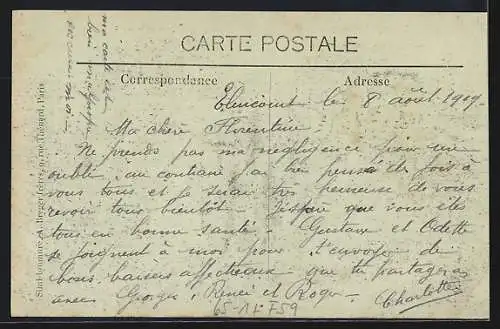 CARTE POSTALE
Correspondance
Adresse
Elincourt le 8 août 1919.
Ma chère Florentine.
Ne prends pas ma négligence pour un
oubli, au contraire j'ai bien pensé des fois à
vous tous et je serai très heureuse de vous
revoir tous bientôt. J'espère que vous êtes
tous en bonne santé. Gustave et Odette
se joignent à moi pour t'envoyer de
bons baisers affectueux que tu partageras
avec Georges, Renée et Roger.
Charlotte
ma carte est
bien
Simi-bromure A. Breger frères, 9, rue Thénard, Paris